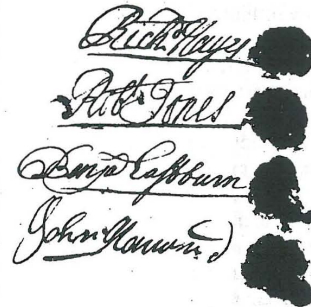 Rich.d Hayes
Rob.t Jones
Benj.a Eastburn
John